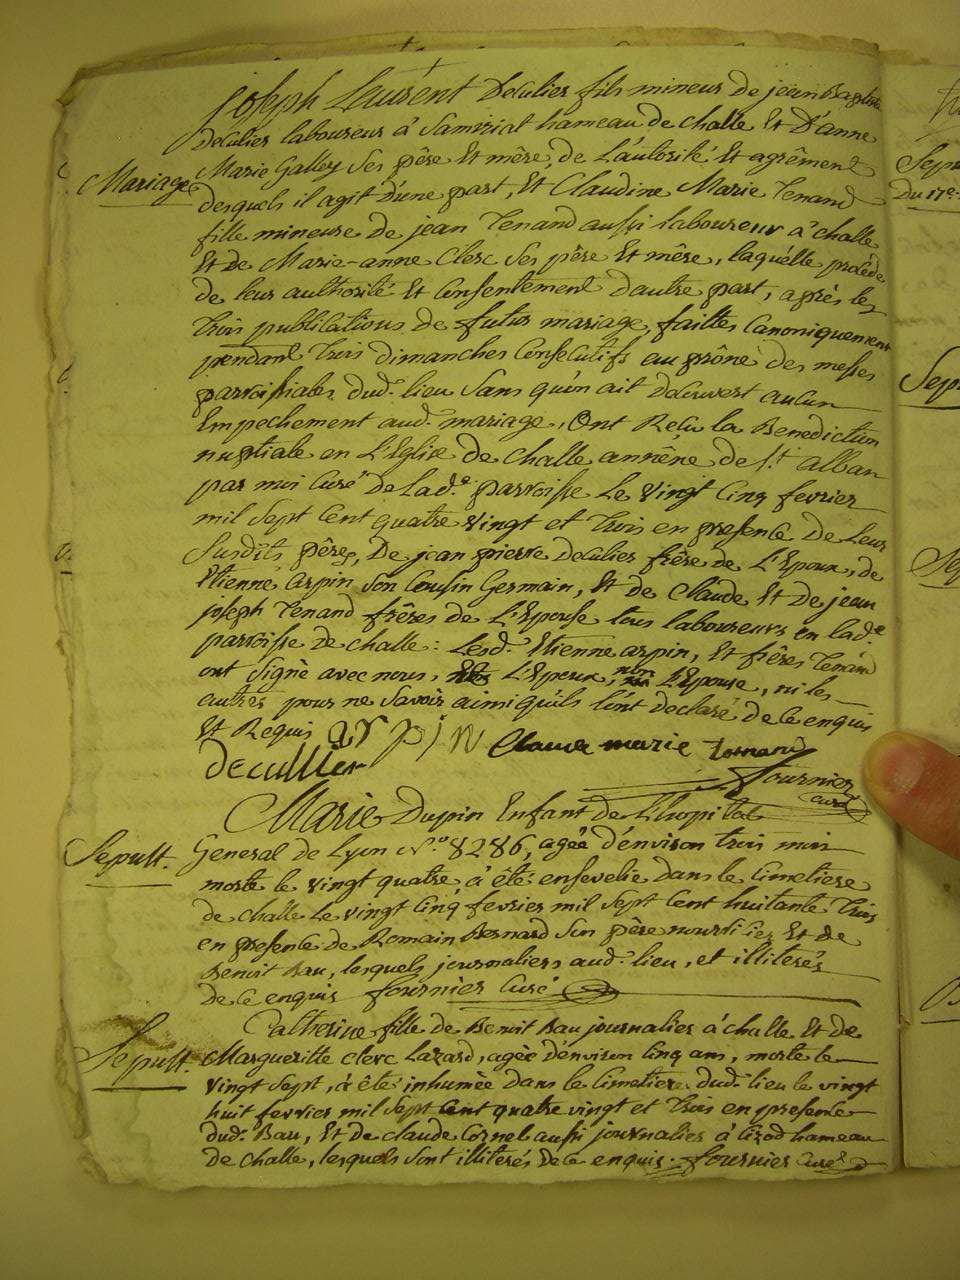 joseph Laurent Decullier fils mineur de jean Baptiste
Decullier laboureur à Samiriat hameau de challe Et D'anne
Mariage
Marie Galley Ses père Et mère, de L'autorité Et agrêment
desquels il agit d'une part, Et Claudine Marie Tenand
fille mineure de jean Tenand aussi laboureur à challe
Et de Marie-anne Clerc Ses père Et mêre, laquelle procède
de leur authorité Et Consentement d'autre part, après les
trois publications de futur mariage, faittes Canoniquement
pendant trois dimanches Consecutifs au prône des messes
parroissiales dud. lieu Sans qu'on ait decouvert aucun
Empechement aud. mariage, Ont Reçu la Benediction
nuptiale en L'Eglise de challe annêxe de St. alban
par moi Curé de Lad.e parroisse Le Vingt Cinq fevrier
mil Sept Cent quatre vingt et trois en presence de Leurs
Susdits pères, De jean pierre decullier frère de L'Epoux, de
Etienne arpin Son Cousin Germain, Et de Claude Et de jean
joseph Tenand frêres de L'Epouse tous laboureurs en lad.e
parroisse de challe: Lesd. Etienne arpin, Et frères Tenand
ont Signé avec nous, L'Epoux, non L'Epouse, ni les
autres pour ne Savoir ainsi qu'ils l'ont declaré de ce enquis
Et Requis arpin Claude marie Tenand
decullier fournier
curé
Marie Dupin Enfant de L'hopital
Sepult. General de Lyon N.o 8286, agée d'environ trois mois
morte le vingt quatre à été ensevelie dans le Cimetiere
de challe le vingt Cinq fevrier mil Sept Cent huitante trois
en presence de Romain Bernard Son père nourricier Et de
Benoit Bau, lesquels journaliers aud. lieu, et illiterés
de Ce enquis fournier Curé
Catherine fille de Benoit Bau journalier à challe Et de
Sepult. Margueritte clerc Lazard, agée d'environ Cinq ans, morte le
vingt Sept, à été inhumée dans le Cimetiere dud. lieu le vingt
huit fevrier mil Sept Cent quatre vingt et trois en presence
dud. Bau, Et de claude Cornel aussi journalier à Cirod hameau
de challe, lesquels sont illiterés de ce enquis. fournier Curé
Sepu
Du 17e.
Sep
Sep